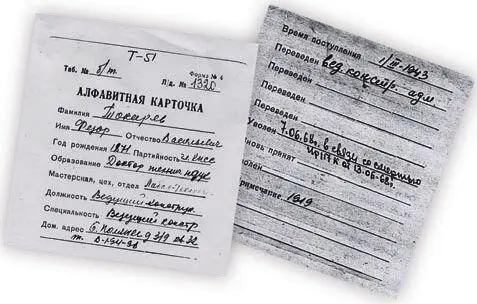 Т-51
Таб. № б/т Форма № 6
Л/д. № 1320
АЛФАВИТНАЯ КАРТОЧКА
Фамилия Токарев
Имя Федор Отчество Васильевич
Год рождения 1871 Партийность чл. КПСС
Образование Доктор технич. наук
Мастерская, цех, отдел
Должность Ведущий конструк.
Специальность Ведущий констр.
Дом. адрес
Время поступления 1/III-1943
Переведен вед. констр. адм
Переведен
Переведен
Переведен
Уволен 7.06.68г. в связи со смертью
Вновь принят от 13.06.68г.
Уволен
Примечание 1919